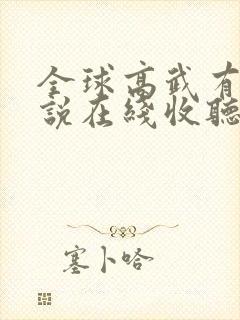 全球高武有
說在綫收聽
塞卜哈